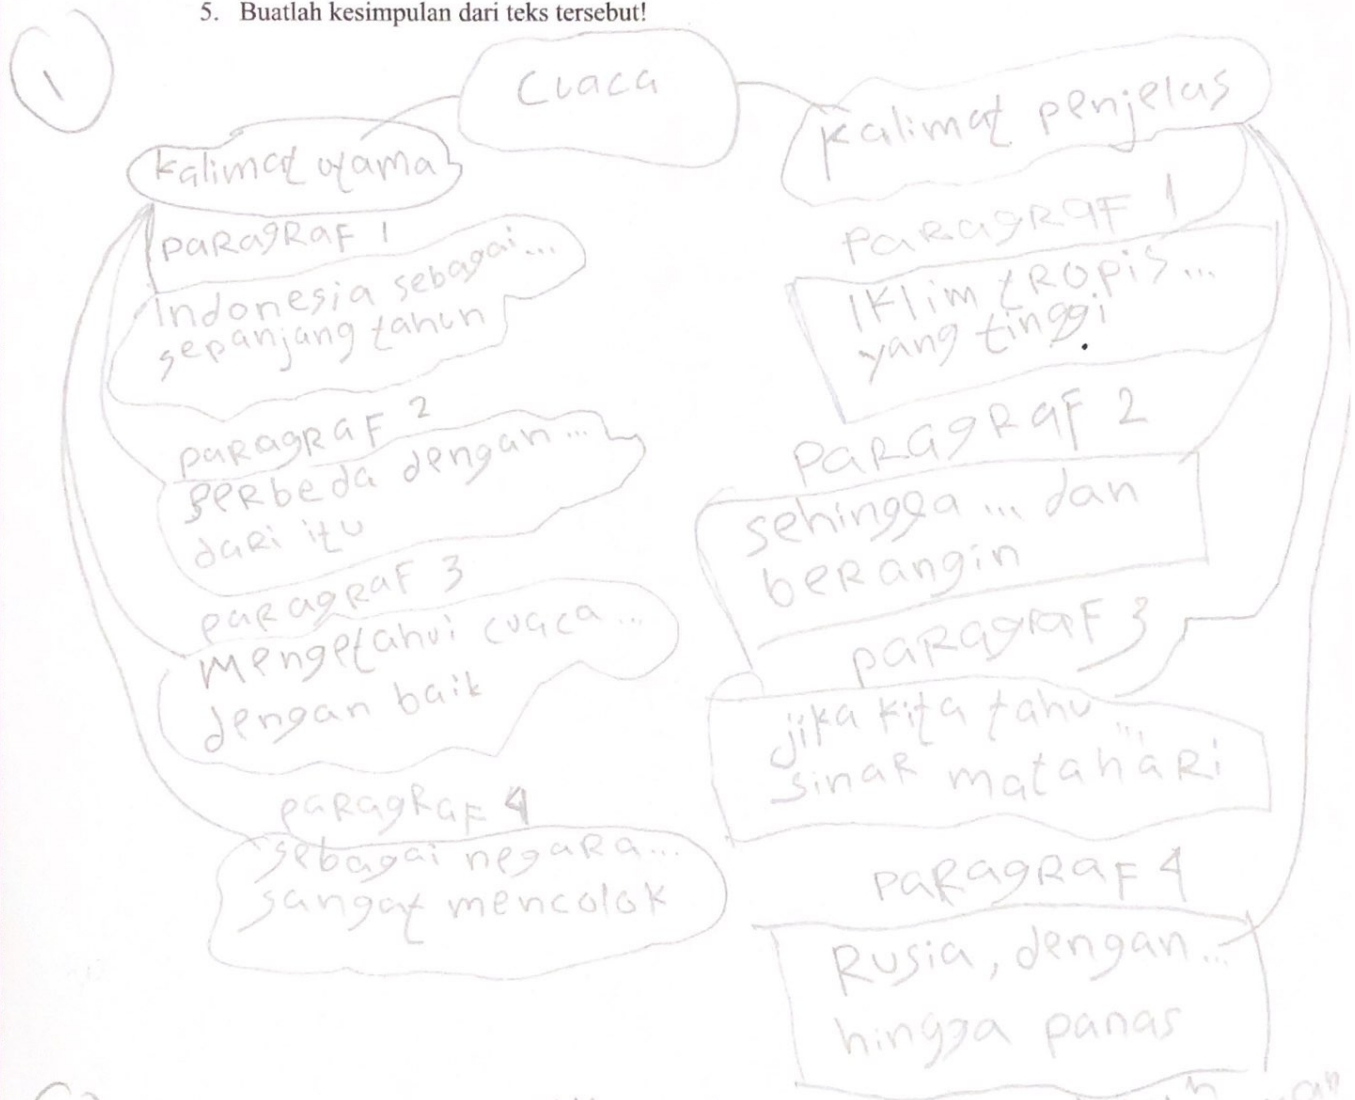 5. Buatlah kesimpulan dari teks tersebut!
1
Cuaca
kalimat utama
paragraf 1
Indonesia sebagai...
sepanjang tahun
paragraf 2
Berbeda dengan...
dari itu
paragraf 3
Mengetahui cuaca...
dengan baik
paragraf 4
sebagai negara...
sangat mencolok
kalimat penjelas
paragraf 1
Iklim tropis...
yang tinggi
paragraf 2
sehingga... dan
berangin
paragraf 3
jika kita tahu...
sinar matahari
paragraf 4
Rusia, dengan...
hingga panas